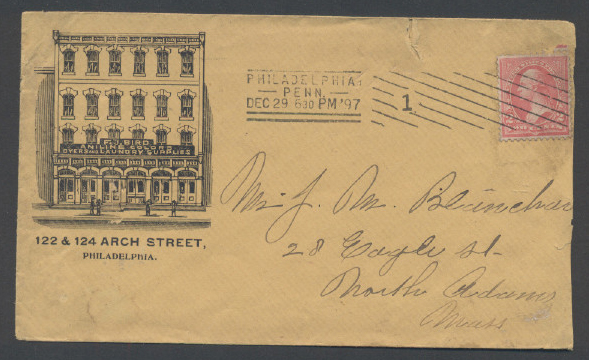 F. J. BIRD
ANILINE COLORS
DYERS AND LAUNDRY SUPPLIES
122 & 124 ARCH STREET,
PHILADELPHIA.
PHILADELPHIA,
PENN.
DEC 29 630 PM '97
1
Mr J. M. Blanchar
28 Eagle St.
North Adams
Mass